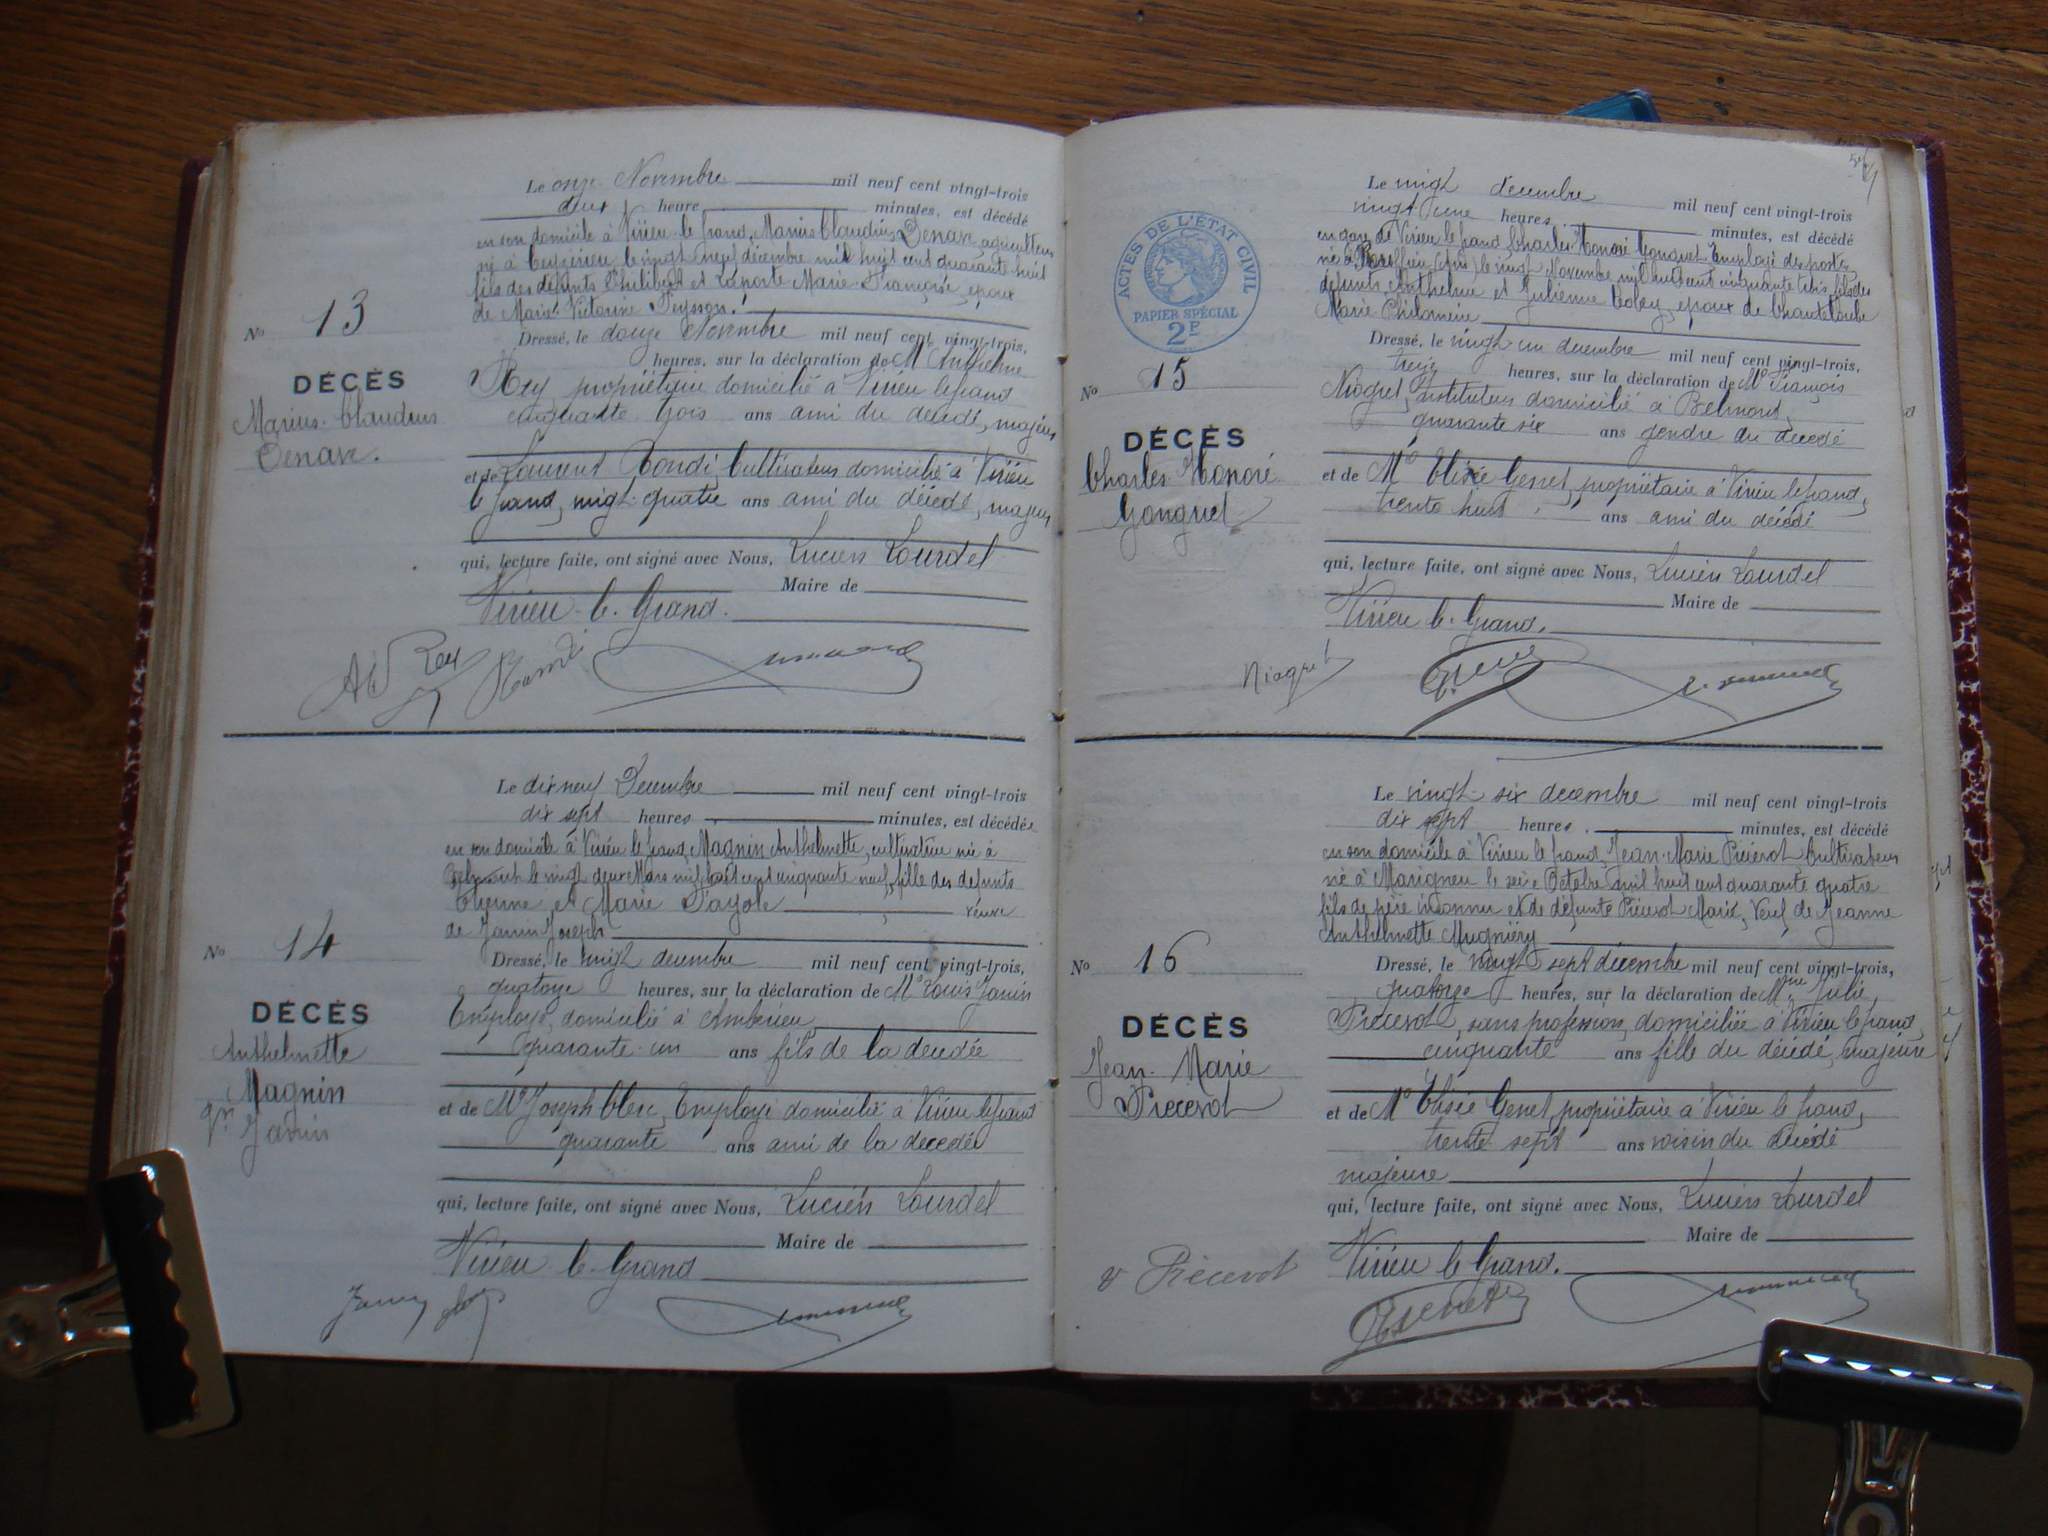 Le onze Novembre mil neuf cent vingt-trois
deux heure minutes, est décédé
en son domicile à Virieu le Grand, Marius Claudius Denave agriculteur
né à le vingt neuf décembre mil huit cent quarante huit
fils des défunts Philibert et Laporte Marie Françoise, époux
de Marie Victorine Peysson.
No 13
Dressé, le douze Novembre mil neuf cent vingt-trois,
heures, sur la déclaration de Mr Anthelme
DÉCÈS
Rey propriétaire domicilié à Virieu le Grand
cinquante trois ans ami du décédé, majeur
Marius Claudius
et de Laurent Rondi, Cultivateur domicilié à Virieu
le Grand, vingt-quatre ans ami du décédé, majeur
qui, lecture faite, ont signé avec Nous, Lucien Lourdel
Maire de
Virieu-le-Grand.
Rey
Le dix neuf Décembre mil neuf cent vingt-trois
dix sept heures minutes, est décédée
en son domicile à Virieu le Grand, Magnin Anthelmette, cultivatrice née à
le vingt deux Mars mil huit cent cinquante neuf, fille des défunts
Etienne et Marie Payole veuve
de Janin Joseph
No 14
Dressé, le vingt decembre mil neuf cent vingt-trois,
quatorze heures, sur la déclaration de Mr Louis Janin
DÉCÈS
Employé, domicilié à Ambérieu,
quarante-un ans fils de la décédée
Anthelmette
Magnin
Vve Janin
et de Mr Joseph Clerc, Employé domicilié à Virieu le Grand
quarante ans ami de la decedée
qui, lecture faite, ont signé avec Nous, Lucien Lourdel
Maire de
Virieu-le-Grand
Janin
Le vingt decembre mil neuf cent vingt-trois
vingt une heures minutes, est décédé
en gare de Virieu le Grand Charles Honoré Gonguet Employé des postes
né à (Ain) le vingt Novembre mil huit cent cinquante trois, fils des
défunts Anthelme et Julienne époux de Chanteloube
Marie Philomene
ACTES DE L'ÉTAT CIVIL
PAPIER SPÉCIAL
2F
No 15
Dressé, le vingt un decembre mil neuf cent vingt-trois,
treize heures, sur la déclaration de Mr François
DÉCÈS
Niogret, instituteur domicilié à Belmont,
quarante six ans gendre du decedé
Charles Honoré
Gonguet
et de Mr Elisée Genet, propriétaire à Virieu le Grand,
trente huit ans ami du décédé
qui, lecture faite, ont signé avec Nous, Lucien Lourdel
Maire de
Virieu le Grand.
Niogret
Le vingt-six decembre mil neuf cent vingt-trois
dix sept heures minutes, est décédé
en son domicile à Virieu le Grand, Jean-Marie Précerot Cultivateur
né à Marignieu le seize Octobre mil huit cent quarante quatre
fils de père inconnu et de défunte Précerot Marie, Veuf de Jeanne
Anthelmette Mugniery
No 16
Dressé, le vingt sept décembre mil neuf cent vingt-trois,
quatorze heures, sur la déclaration de Mme Julie
DÉCÈS
Précerot, sans profession, domiciliée à Virieu le Grand,
cinquante ans fille du décédé, majeure
Jean-Marie
Précerot
et de Mr Elisée Genet, propriétaire à Virieu le Grand,
trente sept ans voisin du décédé
majeure
qui, lecture faite, ont signé avec Nous, Lucien Lourdel
Maire de
Virieu le Grand.
Précerot